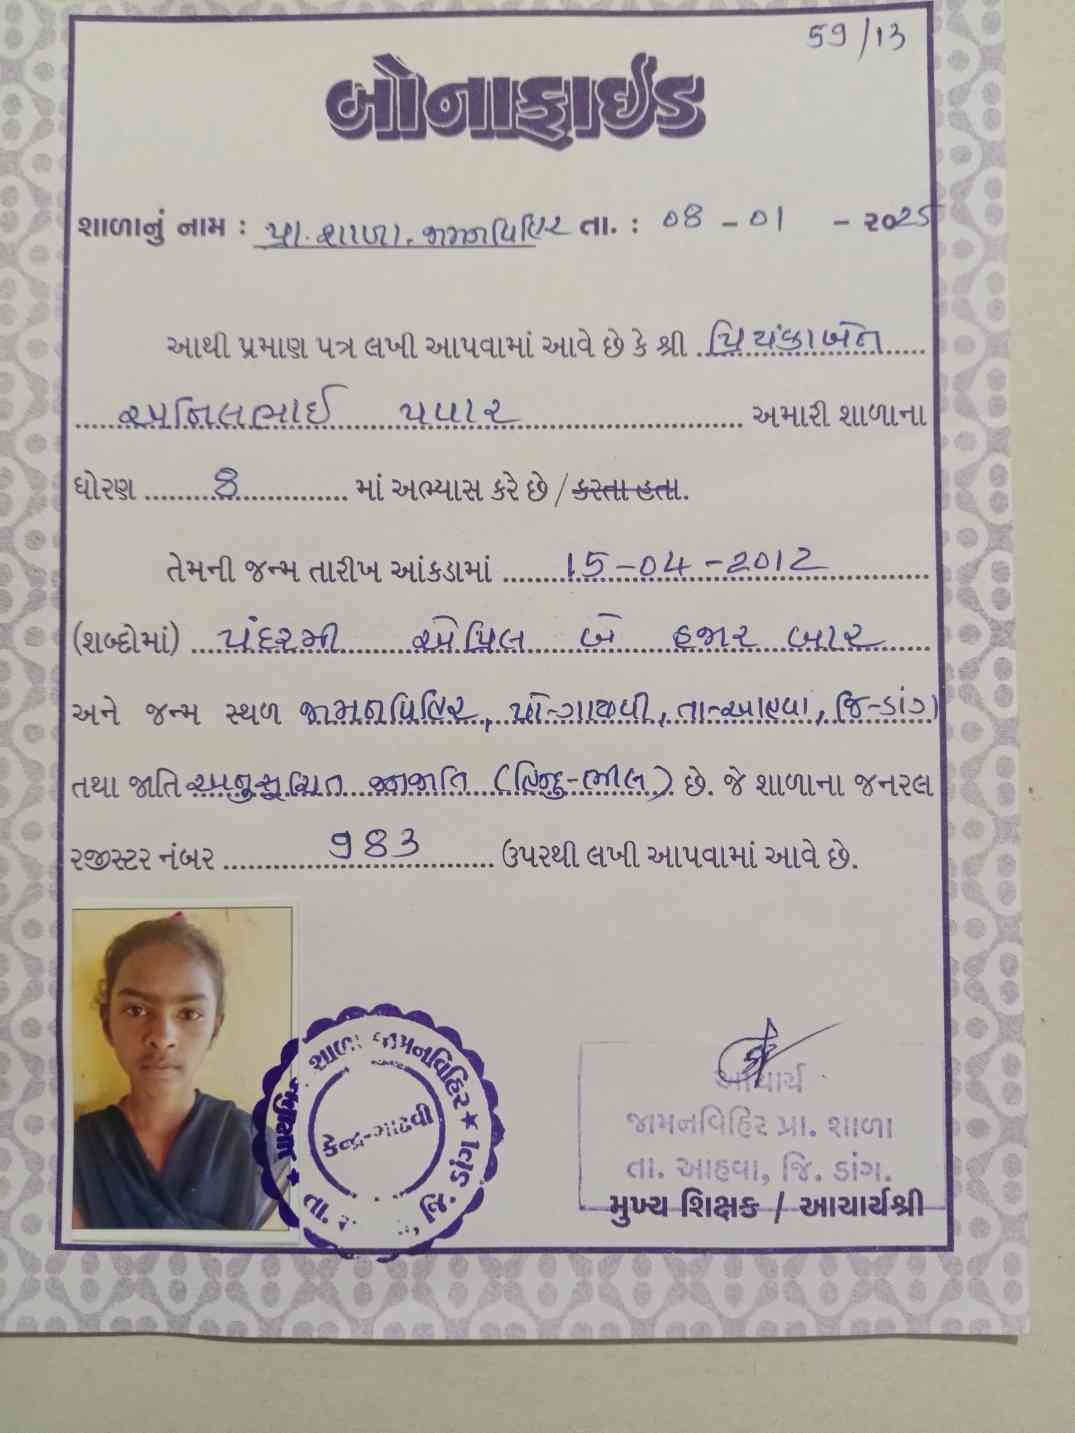 59/13
બોનાફાઈડ
શાળાનું નામ : પ્રા. શાળા. જામનવિહિર તા. : 08 - 01 - ૨૦25
આથી પ્રમાણ પત્ર લખી આપવામાં આવે છે કે શ્રી પ્રિયંકાબેન
અનિલભાઈ પવાર અમારી શાળાના
ધોરણ 8 માં અભ્યાસ કરે છે / કરતા હતા.
તેમની જન્મ તારીખ આંકડામાં 15-04-2012
(શબ્દોમાં) પંદરમી એપ્રિલ બે હજાર બાર
અને જન્મ સ્થળ જામનવિહિર, પો-ગાઢવી, તા-આહવા, જિ-ડાંગ
તથા જાતિ અનુસૂચિત જનજાતિ (હિન્દુ-ભીલ) છે. જે શાળાના જનરલ
રજીસ્ટર નંબર 983 ઉપરથી લખી આપવામાં આવે છે.
શાળા જામનવિહિર ★ ડાંગ
કેન્દ્ર-ગાઢવી
આચાર્ય
જામનવિહિર પ્રા. શાળા
તા. આહવા, જિ. ડાંગ.
મુખ્ય શિક્ષક / આચાર્યશ્રી